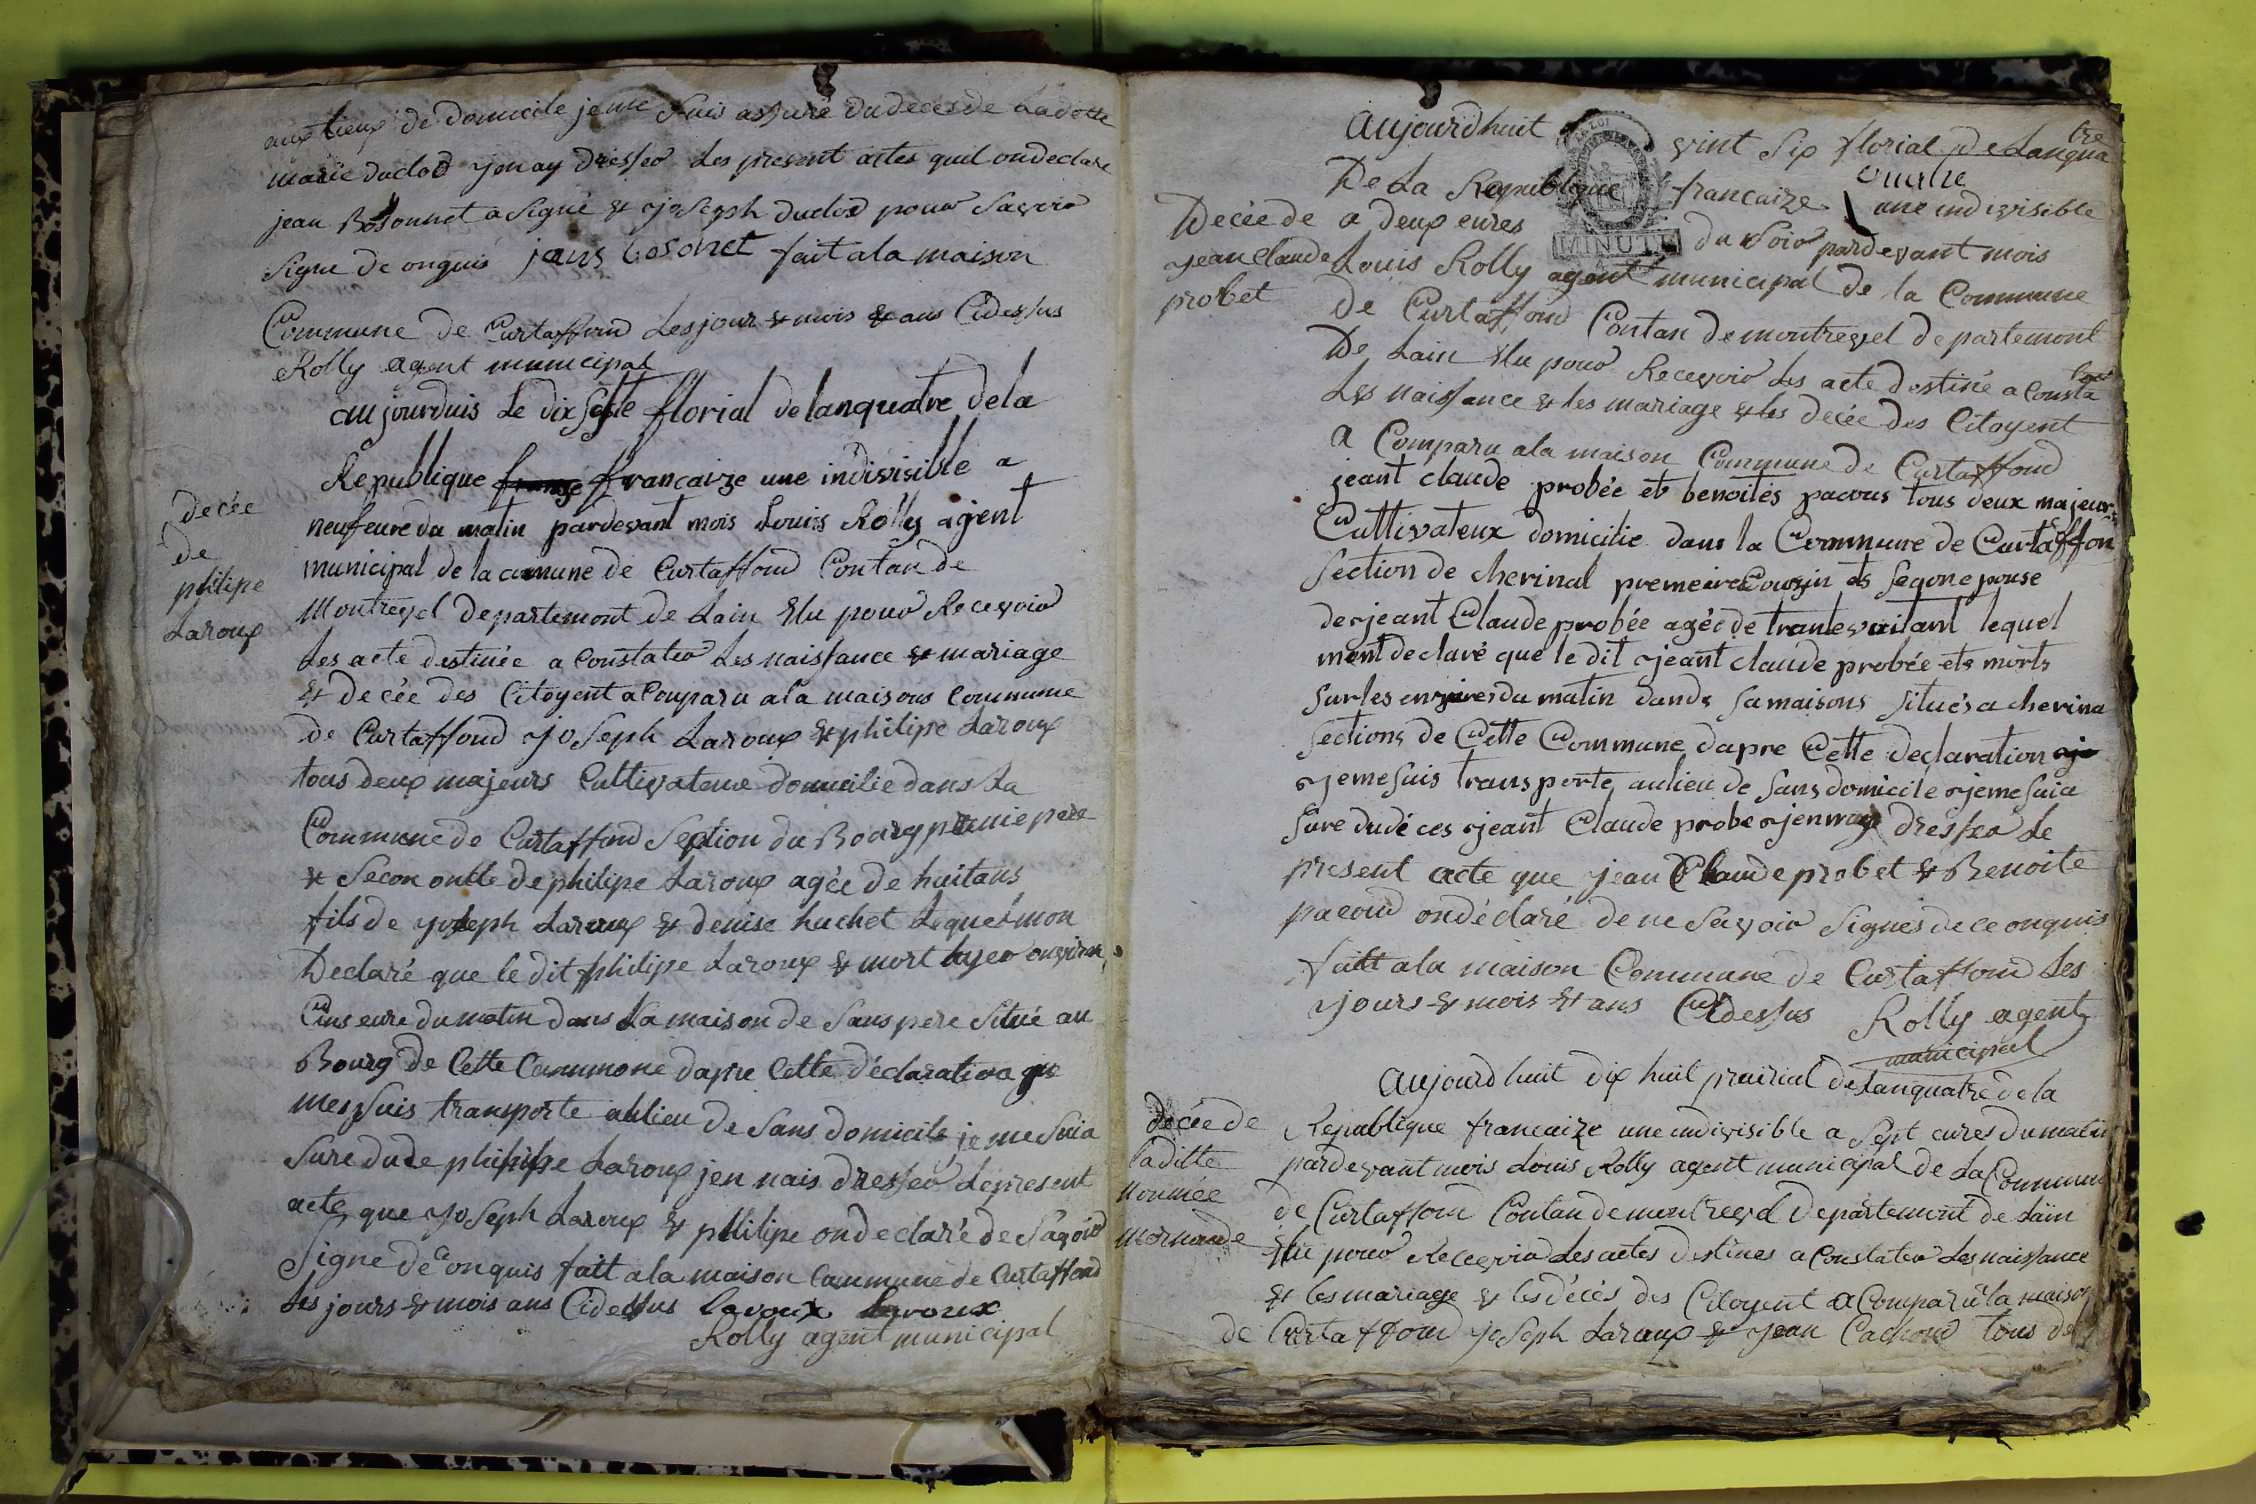 aux lieux de domicile je me suis assuré du deces de Ladotte
marie duclod jenay dresseo Les present actes quil ondeclare
jean Bosonnet a Signé & joseph duclod pouo Savoio
Signe de onquis jans bosonet fait a la maison
Commune de Curtaffond Lesjour & mois & ans Cidessus
Rolly agent municipal
aujourduis Le dix Septe florial de lanquatre de la
Republique francaize une indivisible a
neufeure du matin pardevant mois Louis Rolly agent
municipal de la comune de Curtaffond Contan de
Montrevel departemont de Lain Elu pouo Recevoio
Les acte destinée a Constateo Les naissance & mariage
& decée des Citoyent a Comparu a la maisons Commune
de Curtaffond joseph Laroux & philipe Laroux
tous deux majeurs Cultivateure domicilie dans La
Commune de Curtaffond Seption du Bourg premie pere
& Secon onlle de philipe Laroux agée de huitans
fils de joseph Laroux & denise huchet Lequel mon
Declaré que le dit philipe Laroux & mort hyeo environs
Cins eure du matin dans La maison de Sans pere Situé au
Bourg de Cette Commune dapre Cette déclaration je
mes suis transporte aulieu de Sans domicile je me Suia
Sure dude philipe Laroux jen nais dresseo Lepresent
acte que joseph Laroux & philipe ondeclaré de Savoio
Signe de Ce onquis fait a la maison Commune de Curtaffond
Les jours & mois ans Cidessus laroux laroux
Rolly agent municipal
decée
de
philipe
Laroux
Aujourdhuit vint Six florial de Lanqua
tre
quatre
De La Republique francaize une indivisible
a deux eures du Soio pardevant mois
Louis Rolly agent municipal de la Commune
De Curtaffond Contan de montrevel departemont
De Lain Elu pouo Recevoio Les acte destinée a Consta
teo
Les naissance & les mariage & les decée des Citoyent
a Comparu a la maison Commune de Curtaffond
jeant claude probée ets benoites pacous tous deux majeurs
Cultivateux domicilie dans la Commune de Curtaffon
Section de cherinal premeire Couzin ets Segone pouse
de jeant Claude probée agée de trante vuitant lequel
ment declaré que le dit jeant claude probée ets morts
Sur les environ du matin dands Samaisons Situés a cherina
Sections de Cette Commune dapre Cette declaration je
jemesuis transporte aulieu de Sans domicile jeme Suia
Sure dudéces jeant Claude probe jennay dresseo Le
present acte que jean Claude probet & Benoite
pacoud ondéclaré de ne Savoio Signes de ce onquis
fait a la maison Commune de Curtaffond Les
jours & mois & ans Cidessus Rolly agent
municipal
Decée de
jean claude
probet
Aujourdhuit dix huit prairial de Lanquatre de la
Republique francaize une indivisible a Sept eures du matin
pardevant mois Louis Rolly agent municipal de La Commun
de Curtaffond Contan de montrevel Departement de Lain
Elu pouo Recevoio Les actes destines a Constateo Les naissance
& les mariage & les décés des Citoyent a Comparu a la maison
de Curtaffond joseph Laroux & jean Cachoud tous de
decée de
la ditte
nommée
mornande
MINUTE